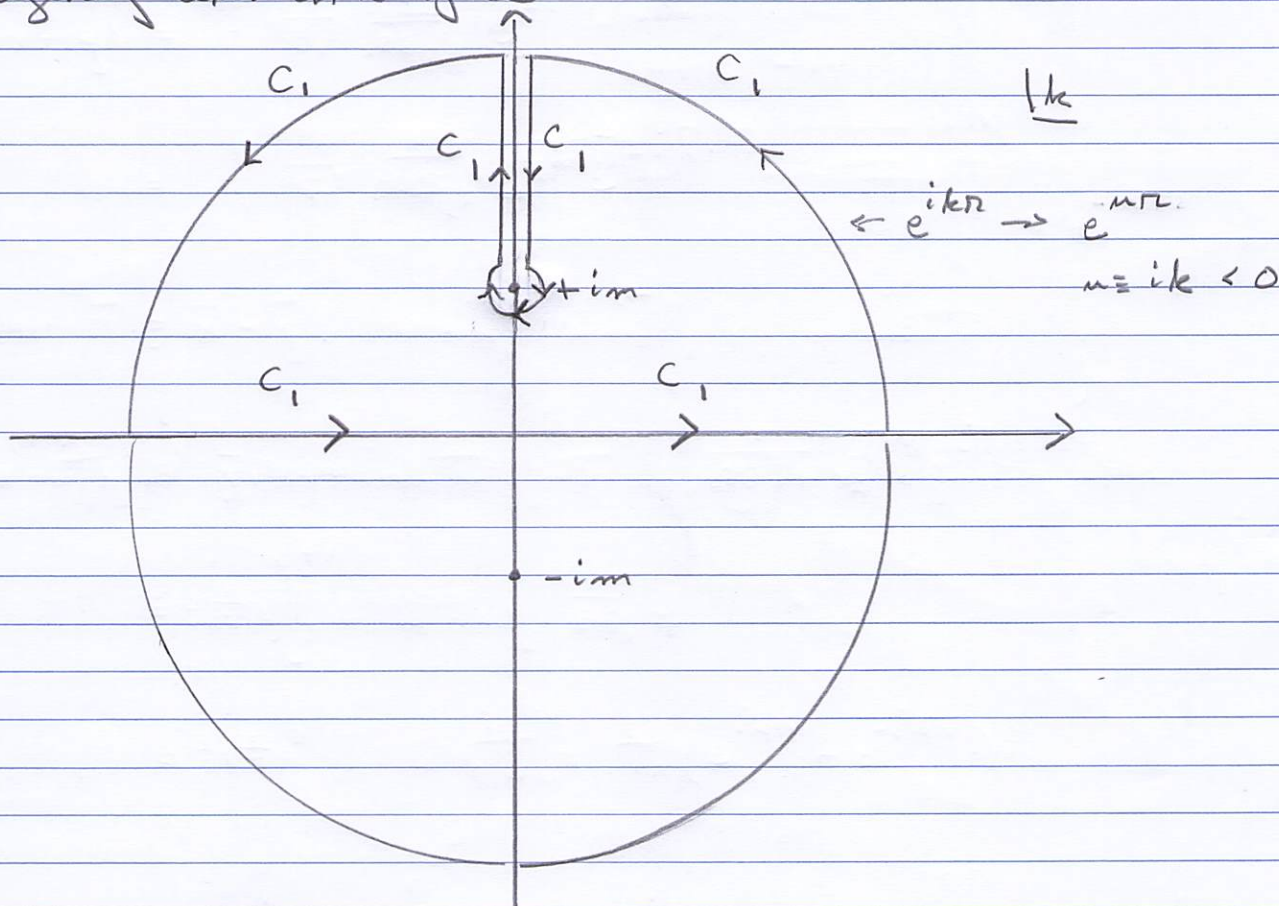 C₁ C₁ k
C₁ C₁
← e^{ikr} → e^{ur}
+im u ≡ ik < 0
C₁ C₁
-im